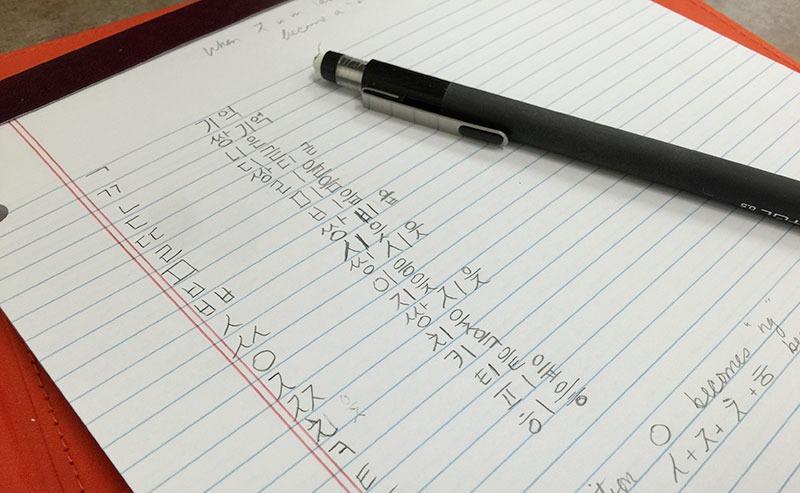 When
become a
ㄱ 기역
ㄲ 쌍기역
ㄴ 니은
ㄷ 디귿
ㄹ 리을
ㅁ 미음
ㅂ 비읍
ㅃ 쌍비읍
ㅅ 시옷
ㅆ 쌍시옷
ㅇ 이응
ㅈ 지읒
ㅉ 쌍지읒
ㅊ 치읓
ㅋ 키읔
ㅌ 티읕
피읖
히읗
ㅇ becomes "ng"
ㅅ+ㅈ+ㅊ+ㅎ be